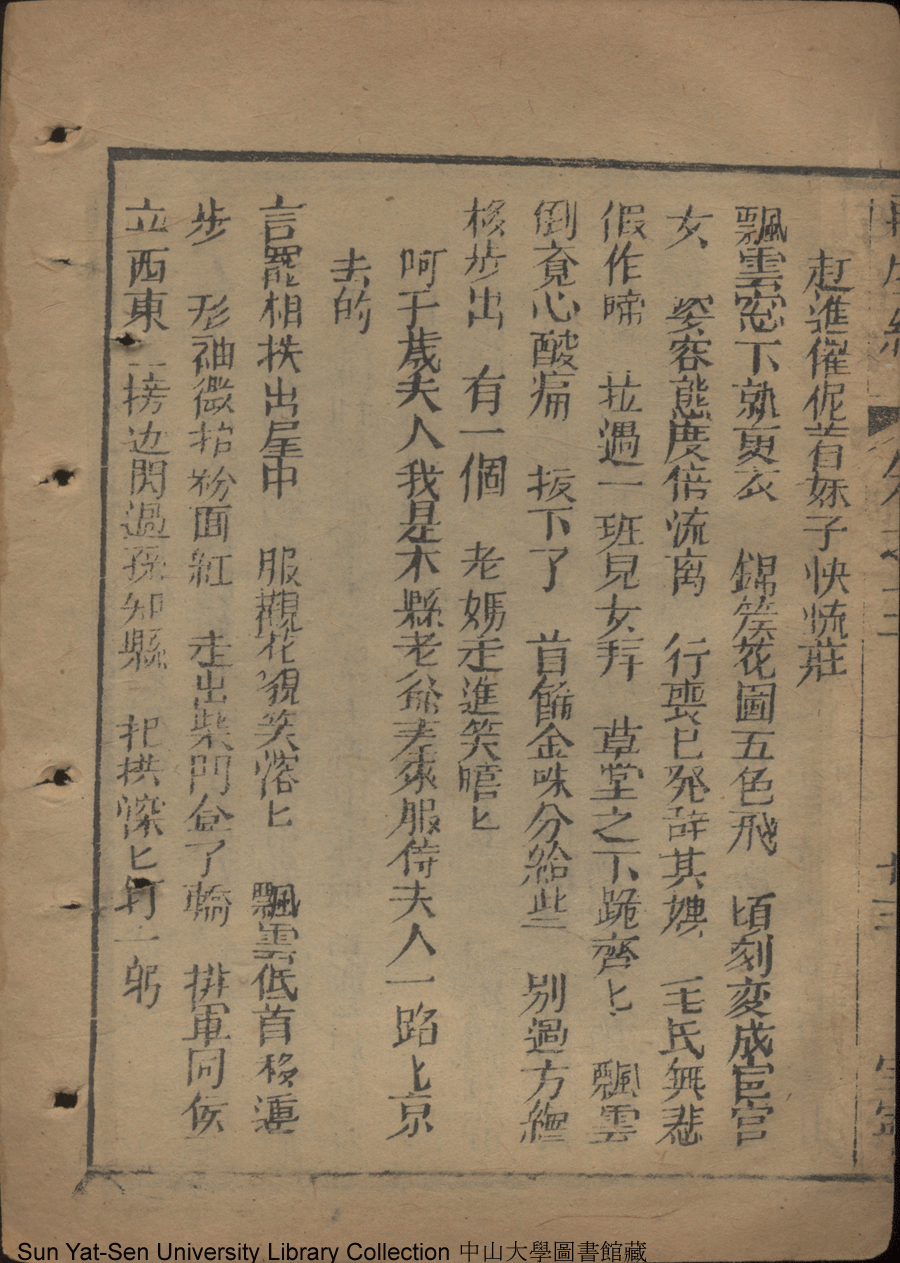 赶進催伲首妹子快恍莊
飄雲窓下就更衣 錦簇花圖五色飛 頃刻变成官宦
女 姿容態度倍流离 行喪已発辞其姨 毛氏無悲
假作啼 拉過一班兒女拜 草堂之下跪齊匕 飄雲
倒竟心酸痛 拔下了 首餙金珠分給些 別過方纔
移步出 有一個 老媽走進笑嘻匕
呵千歲夫人我是木縣老爺差來服侍夫人一路上京
去的
言罷相扶出屋中 服觀花貌笑溶匕 飄雲低首移蓮
步 形袖微抬粉面紅 走出柴門登了轎 排軍同侯
立西東 一榜边閃過孫知縣 把拱深匕打一躬
Sun Yat-Sen University Library Collection 中山大學圖書館藏